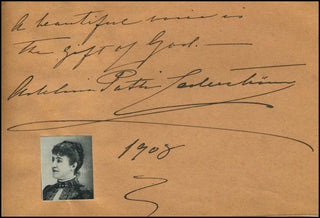 A beautiful voice is
the gift of God. —
Adelina Patti Cederström
1908